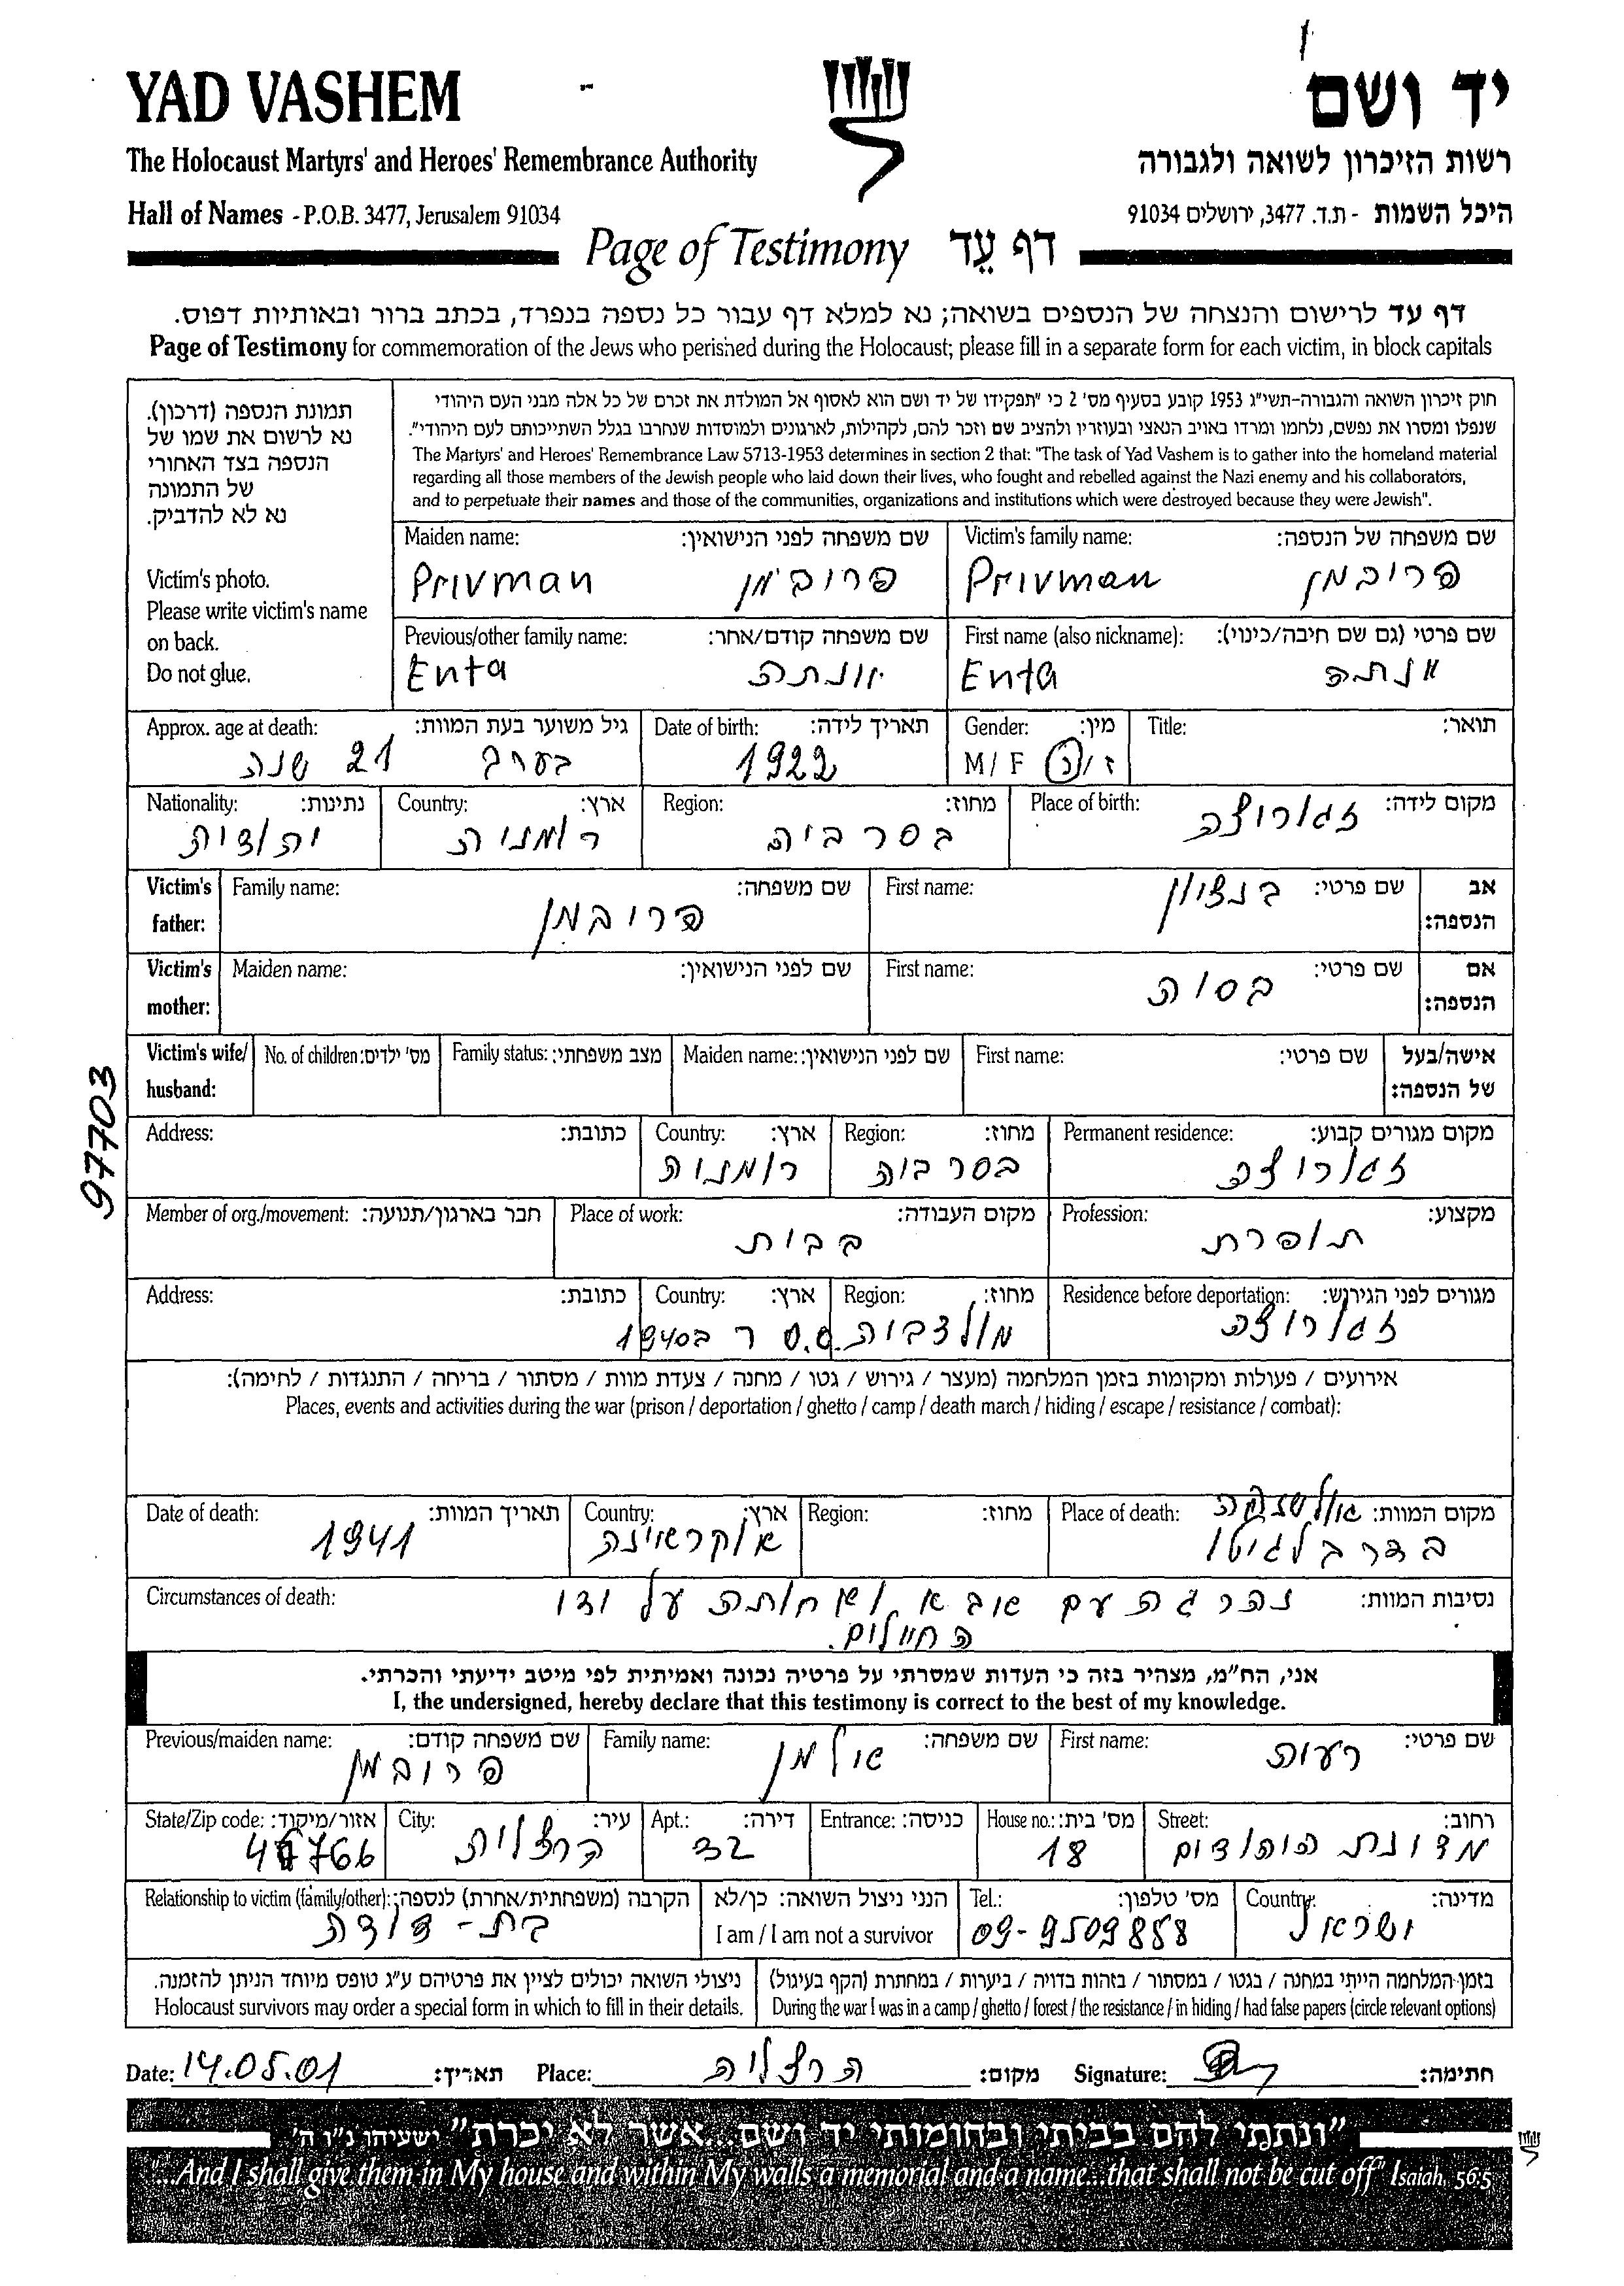 YAD VASHEM
יד ושם
The Holocaust Martyrs' and Heroes' Remembrance Authority
רשות הזיכרון לשואה ולגבורה
Hall of Names - P.O.B. 3477, Jerusalem 91034
היכל השמות - ת.ד. 3477, ירושלים 91034
Page of Testimony דף עֵד
דף עד לרישום והנצחה של הנספים בשואה; נא למלא דף עבור כל נספה בנפרד, בכתב ברור ובאותיות דפוס.
Page of Testimony for commemoration of the Jews who perished during the Holocaust; please fill in a separate form for each victim, in block capitals
תמונת הנספה (דרכון).
נא לרשום את שמו של
הנספה בצד האחורי
של התמונה
נא לא להדביק.
Victim's photo.
Please write victim's name
on back.
Do not glue.
חוק זיכרון השואה והגבורה-תשי"ג 1953 קובע בסעיף מס' 2 כי "תפקידו של יד ושם הוא לאסוף אל המולדת את זכרם של כל אלה מבני העם היהודי
שנפלו ומסרו את נפשם, נלחמו ומרדו באויב הנאצי ובעוזריו ולהציב שם וזכר להם, לקהילות, לארגונים ולמוסדות שנחרבו בגלל השתייכותם לעם היהודי".
The Martyrs' and Heroes' Remembrance Law 5713-1953 determines in section 2 that: "The task of Yad Vashem is to gather into the homeland material
regarding all those members of the Jewish people who laid down their lives, who fought and rebelled against the Nazi enemy and his collaborators,
and to perpetuate their names and those of the communities, organizations and institutions which were destroyed because they were Jewish".
Victim's family name: שם משפחה של הנספה:
Privman פריבמן
Maiden name: שם משפחה לפני הנישואין:
Privman פריבמן
First name (also nickname): שם פרטי (גם שם חיבה/כינוי):
Enta
Previous/other family name: שם משפחה קודם/אחר:
Enta
Title: תואר:
Gender: מין:
M / F ז / נ
Date of birth: תאריך לידה:
1922
Approx. age at death: גיל משוער בעת המוות:
בערך 21 שנה
Place of birth: מקום לידה:
זגוריצה
Region: מחוז:
בסרביה
Country: ארץ:
רומניה
Nationality: נתינות:
יהודיה
Victim's father: אב הנספה:
First name: שם פרטי:
בנציון
Family name: שם משפחה:
פריבמן
Victim's mother: אם הנספה:
First name: שם פרטי:
בסיה
Maiden name: שם לפני הנישואין:
Victim's wife/ husband: אישה/בעל של הנספה:
First name: שם פרטי:
Maiden name: שם לפני הנישואין:
Family status: מצב משפחתי:
No. of children: מס' ילדים:
Permanent residence: מקום מגורים קבוע:
זגוריצה
Region: מחוז:
בסרביה
Country: ארץ:
רומניה
Address: כתובת:
Profession: מקצוע:
תופרת
Place of work: מקום העבודה:
בבית
Member of org./movement: חבר בארגון/תנועה:
Residence before deportation: מגורים לפני הגירוש:
זגוריצה
Region: מחוז:
מולדביה
Country: ארץ:
ס.ס.ר ב1940
Address: כתובת:
אירועים / פעולות ומקומות בזמן המלחמה (מעצר / גירוש / גטו / מחנה / צעדת מוות / מסתור / בריחה / התנגדות / לחימה):
Places, events and activities during the war (prison / deportation / ghetto / camp / death march / hiding / escape / resistance / combat):
Place of death: מקום המוות:
בדרך לגיטו
Region: מחוז:
Country: ארץ:
אוקראינה
Date of death: תאריך המוות:
1941
Circumstances of death: נסיבות המוות:
נהרגה עם אבא ואחותה על ידי
החיילים.
אני, הח"מ, מצהיר בזה כי העדות שמסרתי על פרטיה נכונה ואמיתית לפי מיטב ידיעתי והכרתי.
I, the undersigned, hereby declare that this testimony is correct to the best of my knowledge.
First name: שם פרטי:
רעיה
Family name: שם משפחה:
Previous/maiden name: שם משפחה קודם:
פריבמן
Street: רחוב:
מדינת היהודים
House no.: מס' בית:
18
Entrance: כניסה:
Apt.: דירה:
32
City: עיר:
הרצליה
State/Zip code: אזור/מיקוד:
Country: מדינה:
ישראל
Tel.: מס' טלפון:
09-9509888
הנני ניצול השואה: כן/לא
I am / I am not a survivor
Relationship to victim (family/other): הקרבה (משפחתית/אחרת) לנספה:
בת-דודה
בזמן המלחמה הייתי במחנה / בגטו / במסתור / בזהות בדויה / ביערות / במחתרת (הקף בעיגול)
During the war I was in a camp / ghetto / forest / the resistance / in hiding / had false papers (circle relevant options)
ניצולי השואה יכולים לציין את פרטיהם ע"ג טופס מיוחד הניתן להזמנה.
Holocaust survivors may order a special form in which to fill in their details.
Date: 14.05.01 תאריך: Place: הרצליה מקום: Signature: חתימה:
"ונתתי להם בביתי ובחומותי יד ושם...אשר לא יכרת" ישעיהו נ"ו ה'
"...And I shall give them in My house and within My walls a memorial and a name...that shall not be cut off" Isaiah, 56:5
97703